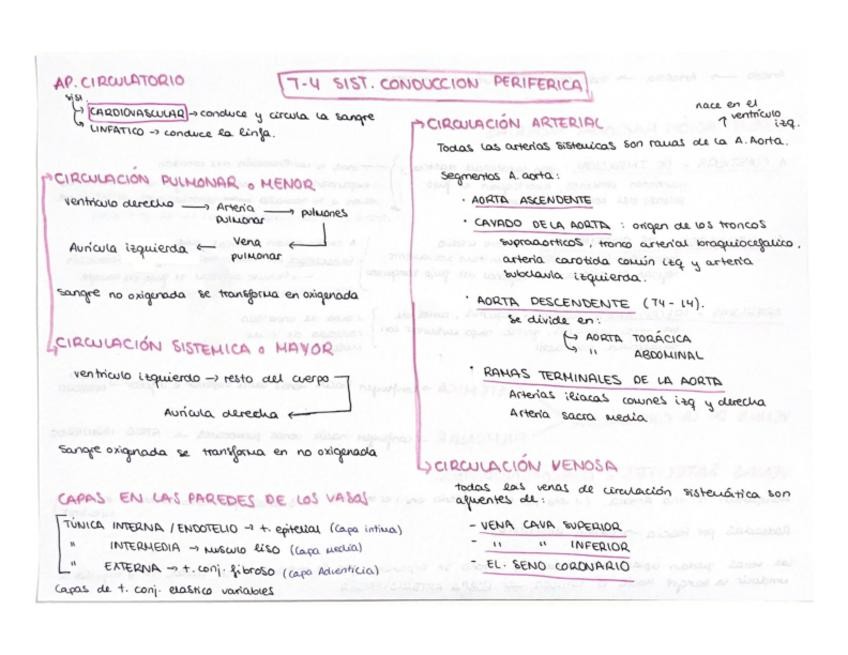 AP. CIRCULATORIO
T-4 SIST. CONDUCCION PERIFERICA
sist.
CARDIOVASCULAR → conduce y circula la sangre
LINFATICO → conduce la linfa.
CIRCULACIÓN PULMONAR o MENOR
ventrículo derecho → Arteria pulmonar → pulmones
Aurícula izquierda ← Vena pulmonar ←
Sangre no oxigenada se transforma en oxigenada
CIRCULACIÓN SISTEMICA o MAYOR
ventrículo izquierdo → resto del cuerpo
Aurícula derecha ←
Sangre oxignada se transforma en no oxigenada
CAPAS EN LAS PAREDES DE LOS VASOS
TÚNICA INTERNA / ENDOTELIO → t. epitelial (capa intima)
" INTERMEDIA → musculo liso (capa media)
" EXTERNA → t. conj. fibroso (capa Adventicia)
Capas de t. conj. elastico variables
CIRCULACIÓN ARTERIAL
nace en el
↑ ventrículo
izq.
Todas las arterias sistemicas son ramas de la A. Aorta.
Segmentos A. aorta:
· AORTA ASCENDENTE
· CAYADO DE LA AORTA : origen de los troncos
supraaorticos, tronco arterial braquiocefalico,
arteria carotida común izq y arteria
subclavia izquierda.
· AORTA DESCENDENTE (T4-L4).
Se divide en:
→ AORTA TORÁCICA
→ " ABDOMINAL
· RAMAS TERMINALES DE LA AORTA
Arterias iliacas comunes izq y derecha
Arteria sacra media.
CIRCULACIÓN VENOSA
todas las venas de circulación sistemática son
afluentes de:
- VENA CAVA SUPERIOR
- " " INFERIOR
- EL. SENO CORONARIO